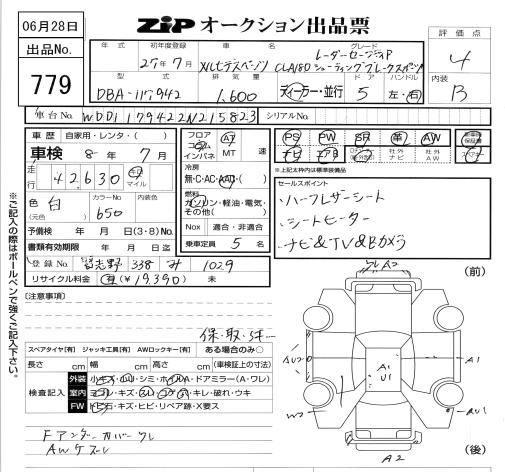 06月28日
ZIP オークション出品票
出品No.
779
年式 初年度登録 車名 グレード
27年7月 メルセデスベンツ レーダーセーフティP
CLA180 シューティングブレークスポーツ
型式 排気量 ドア ハンドル
DBA-117942 1,600 ディーラー・並行 5 左・右
評価点
4
内装
B
車台No. WDD1179422N215823 シリアルNo.
車歴 自家用・レンタ( )
車検 8年 7月
走行 42,630 km マイル
色 (元色) 白 カラーNo 650 内装色
予備検 年 月 日(3・8)No.
書類有効期限 年 月 日迄
登録No. 習志野 338 み 1029
リサイクル料金 有(¥19,390) 未
フロア コラム インパネ AT MT 速
冷房
無・C・AC・AAC・( )
燃料
ガソリン・軽油・電気・その他( )
Nox 適合・非適合
乗車定員 5 名
PS PW SR 革 AW
ナビ エアB 社外ナビ 社外AW
※上記太枠内は標準装備品
セールスポイント
・ハーフレザーシート
・シートヒーター
・ナビ&TV&Bカメラ
※ご記入の際はボールペンで強くご記入下さい。
[注意事項]
保・取・S
スペアタイヤ[有] ジャッキ工具[有] AWロックキー[有] ある場合のみ〇
長さ cm 幅 cm 高さ cm (車検証上の寸法)
検査記入
外装 小キズ・凹・シミ・ホイルA・ドアミラー(A・ワレ)
室内
FW トビ石・キズ・ヒビ・リペア跡・X要ス
Fアンダーカバーワレ
AWケズレ
(前)
ワレA2
AU2
A1
U1
A1
W2
AU1
A2
(後)